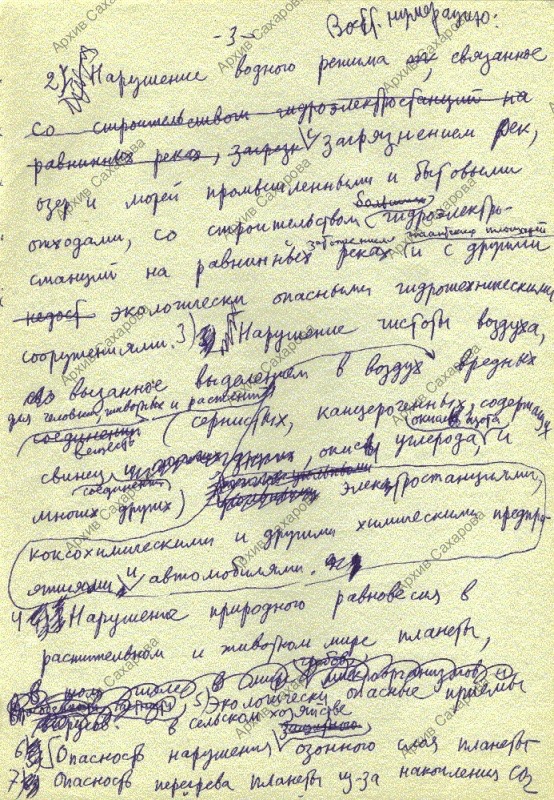 -3- Восст. нумерацию:
2) Нарушение водного режима связанное
со строительством гидроэлектростанций на
равнинных реках, загрязнением рек,
озер и морей промышленными и бытовыми
отходами, со строительством больших гидроэлектро-
станций на равнинных реках с затоплением площадей и с другими
экологически опасными гидротехническими
сооружениями. 3) Нарушение чистоты воздуха,
вызванное выделением в воздух вредных
для человека, животных и растений
соединений
веществ (сернистых, канцерогенных, содержащих
свинец, окиси углерода, окислов азота и
многих других соединений) электростанциями,
коксохимическими и другими химическими предпри-
ятиями и автомобилями.
4) Нарушение природного равновесия в
растительном и животном мире планеты,
в том числе в мире микроорганизмов
грибов
5) Экологически опасные приемы
в сельском хозяйстве
6) Опасность нарушения озонного слоя планеты
7) Опасность перегрева планеты из-за накопления CO2
Архив Сахарова